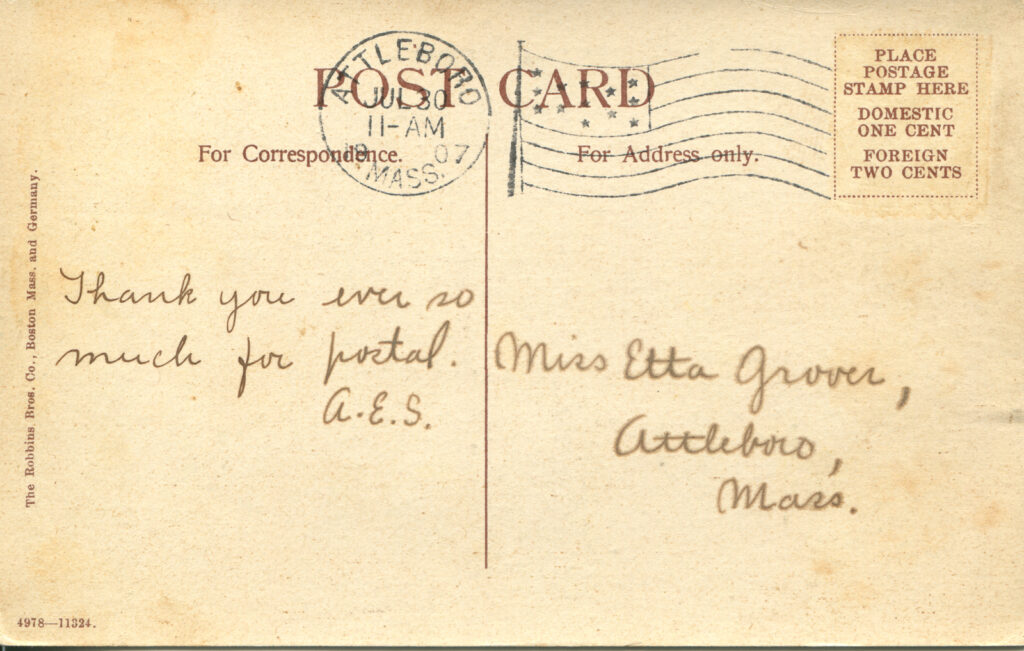 POST CARD
ATTLEBORO
JUL 30
11-AM
19 07
MASS.
For Correspondence.
For Address only.
PLACE
POSTAGE
STAMP HERE
DOMESTIC
ONE CENT
FOREIGN
TWO CENTS
The Robbins Bros. Co., Boston Mass. and Germany.
Thank you ever so
much for postal.
A.E.S.
Miss Etta Grover,
Attleboro,
Mass.
4978—11324.